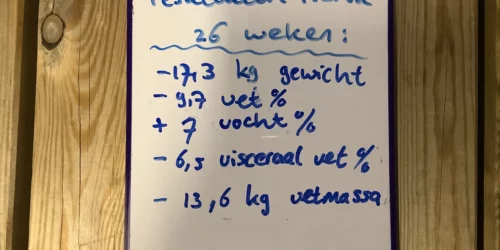 26 weken:
-17,3 kg gewicht
- 9,7 vet %
+ 7 vocht %
- 6,5 visceraal vet %
- 13,6 kg vetmassa